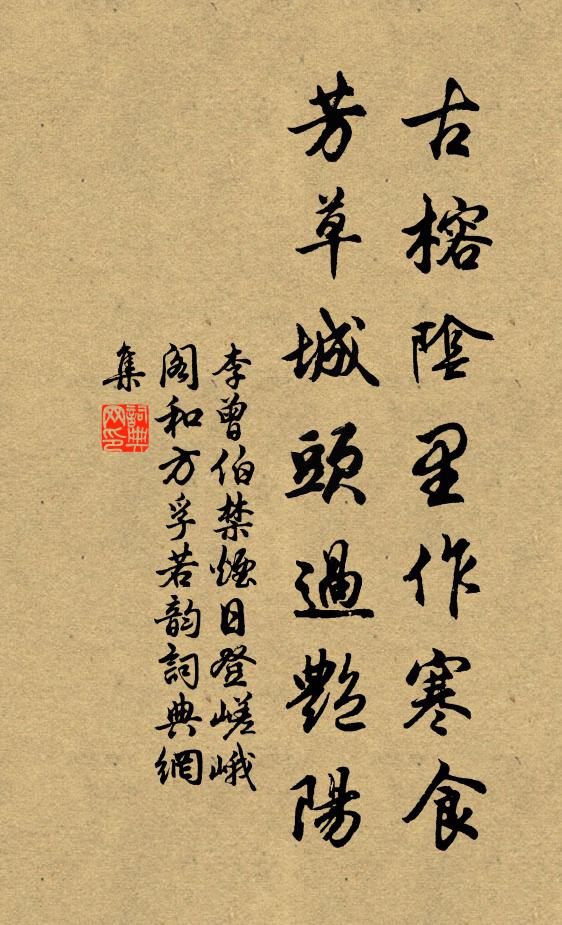 古榕陰里作寒食
芳草城頭過艷陽
李曾伯禁煙日登嵯峨
閣和方孚若韵詞典網
集
詞典
网印